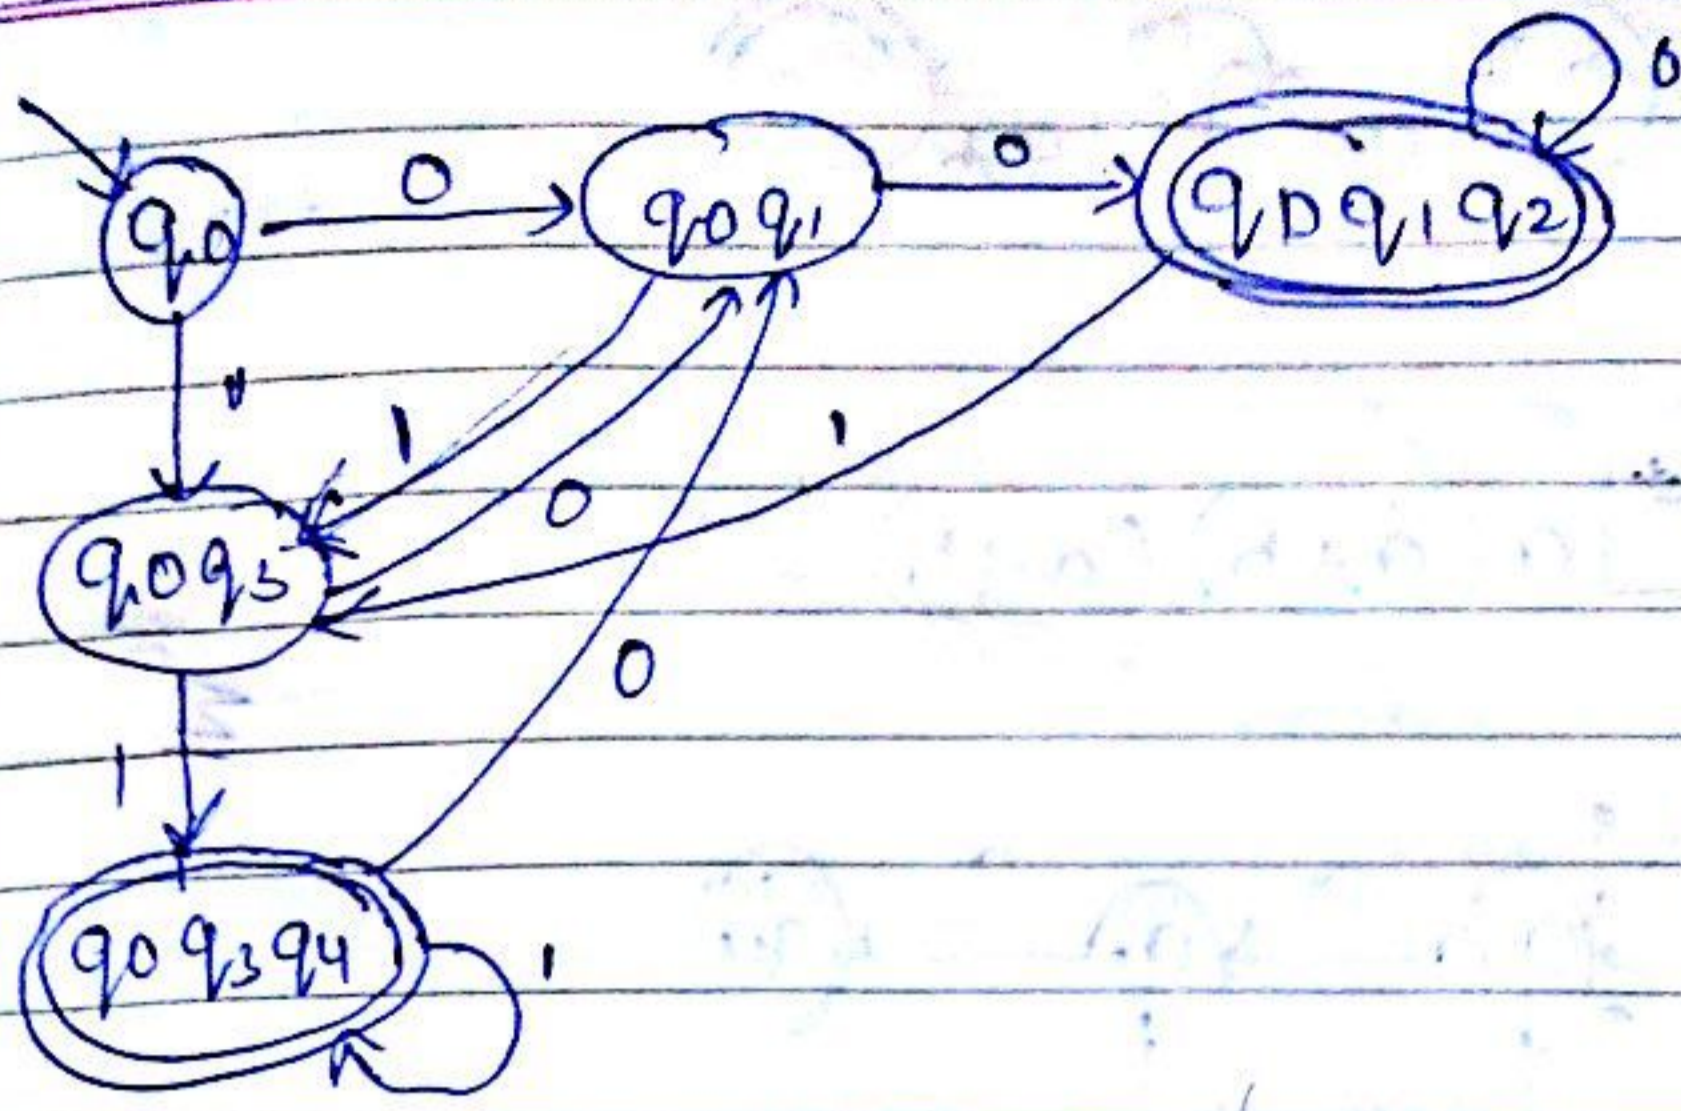 0
q0 0 q0q1 0 q0q1q2
1
1 1
0
q0q3
0
1
q0q3q4 1